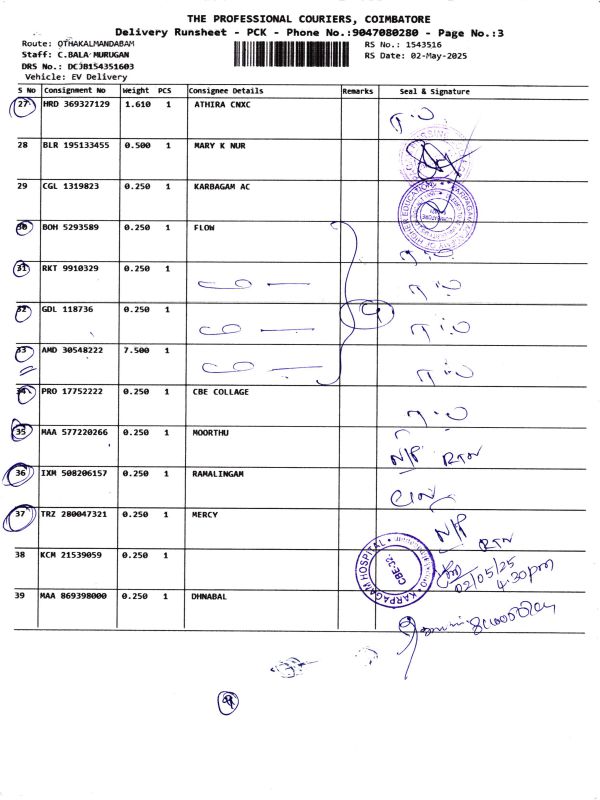 THE PROFESSIONAL COURIERS, COIMBATORE
Delivery Runsheet - PCK - Phone No.:9047080280 - Page No.:3
Route: OTHAKALMANDABAM
RS No.: 1543516
Staff: C.BALA MURUGAN
RS Date: 02-May-2025
DRS No.: DCJB154351603
Vehicle: EV Delivery
S No Consignment No Weight PCS Consignee Details Remarks Seal & Signature
27 HRD 369327129 1.610 1 ATHIRA CNXC
28 BLR 195133455 0.500 1 MARY K NUR
29 CGL 1319823 0.250 1 KARBAGAM AC
30 BOH 5293589 0.250 1 FLOW
31 RKT 9910329 0.250 1
32 GDL 118736 0.250 1
33 AMD 30548222 7.500 1
34 PRO 17752222 0.250 1 CBE COLLAGE
35 MAA 577220266 0.250 1 MOORTHU
N/P RTN
36 IXM 508206157 0.250 1 RAMALINGAM
37 TRZ 280047321 0.250 1 MERCY
N/P RTN
38 KCM 21539059 0.250 1
KARPAGAM HOSPITAL
CBE-32
02/05/25
4.30pm
39 MAA 869398000 0.250 1 DHNABAL
9